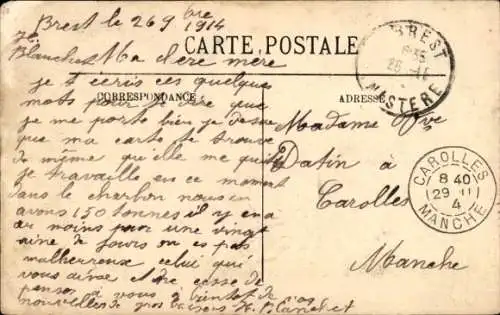 Brest le 26 9bre
1914
Ma chere mere
CARTE POSTALE
je t écris ces quelques
mots pour te dire que
CORRESPONDANCE
ADRESSE
je me porte bien je desire
que ma carte te trouve
de même qu'elle me quitte
je travaille en ce moment
dans le charbon nous en
avons 150 tonnes il y en a
au moins pour une vingt
aine de jours on es pas
malheureux celui qui
vous aime et ne cesse de
penser à vous à bientot de vos
nouvelles de gros baisers
Madame Vve
Datin à
Carolles
Manche
BREST
FINISTERE
CAROLLES
8 40
29 11
4
MANCHE